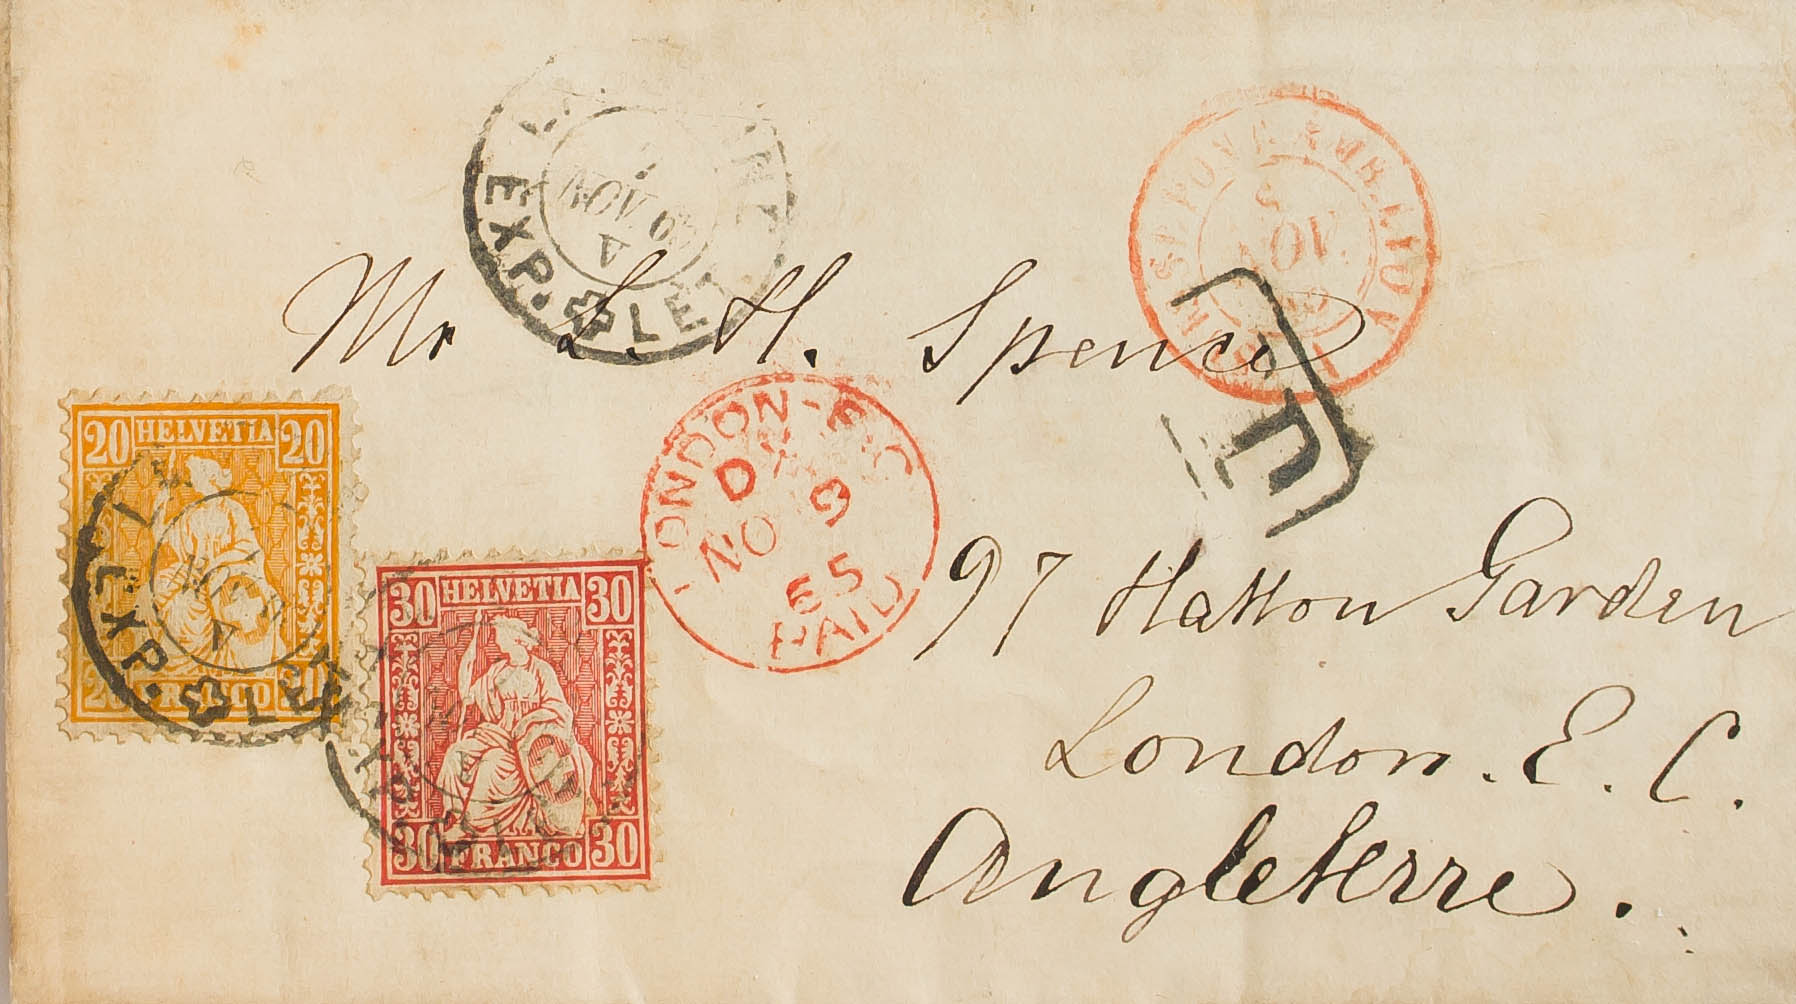 NOV 65
V
EXP. LET
NOV
Mr L. H. Spence
LONDON-E.C
NO 9
65
PAID
20 HELVETIA 20
EXP. LET
20 FRANCO 20
30 HELVETIA 30
30 FRANCO 30
97 Hatton Garden
London. E. C.
Angleterre.